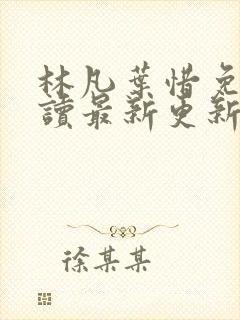 林凡葉惜免
讀最新更新
徐某某